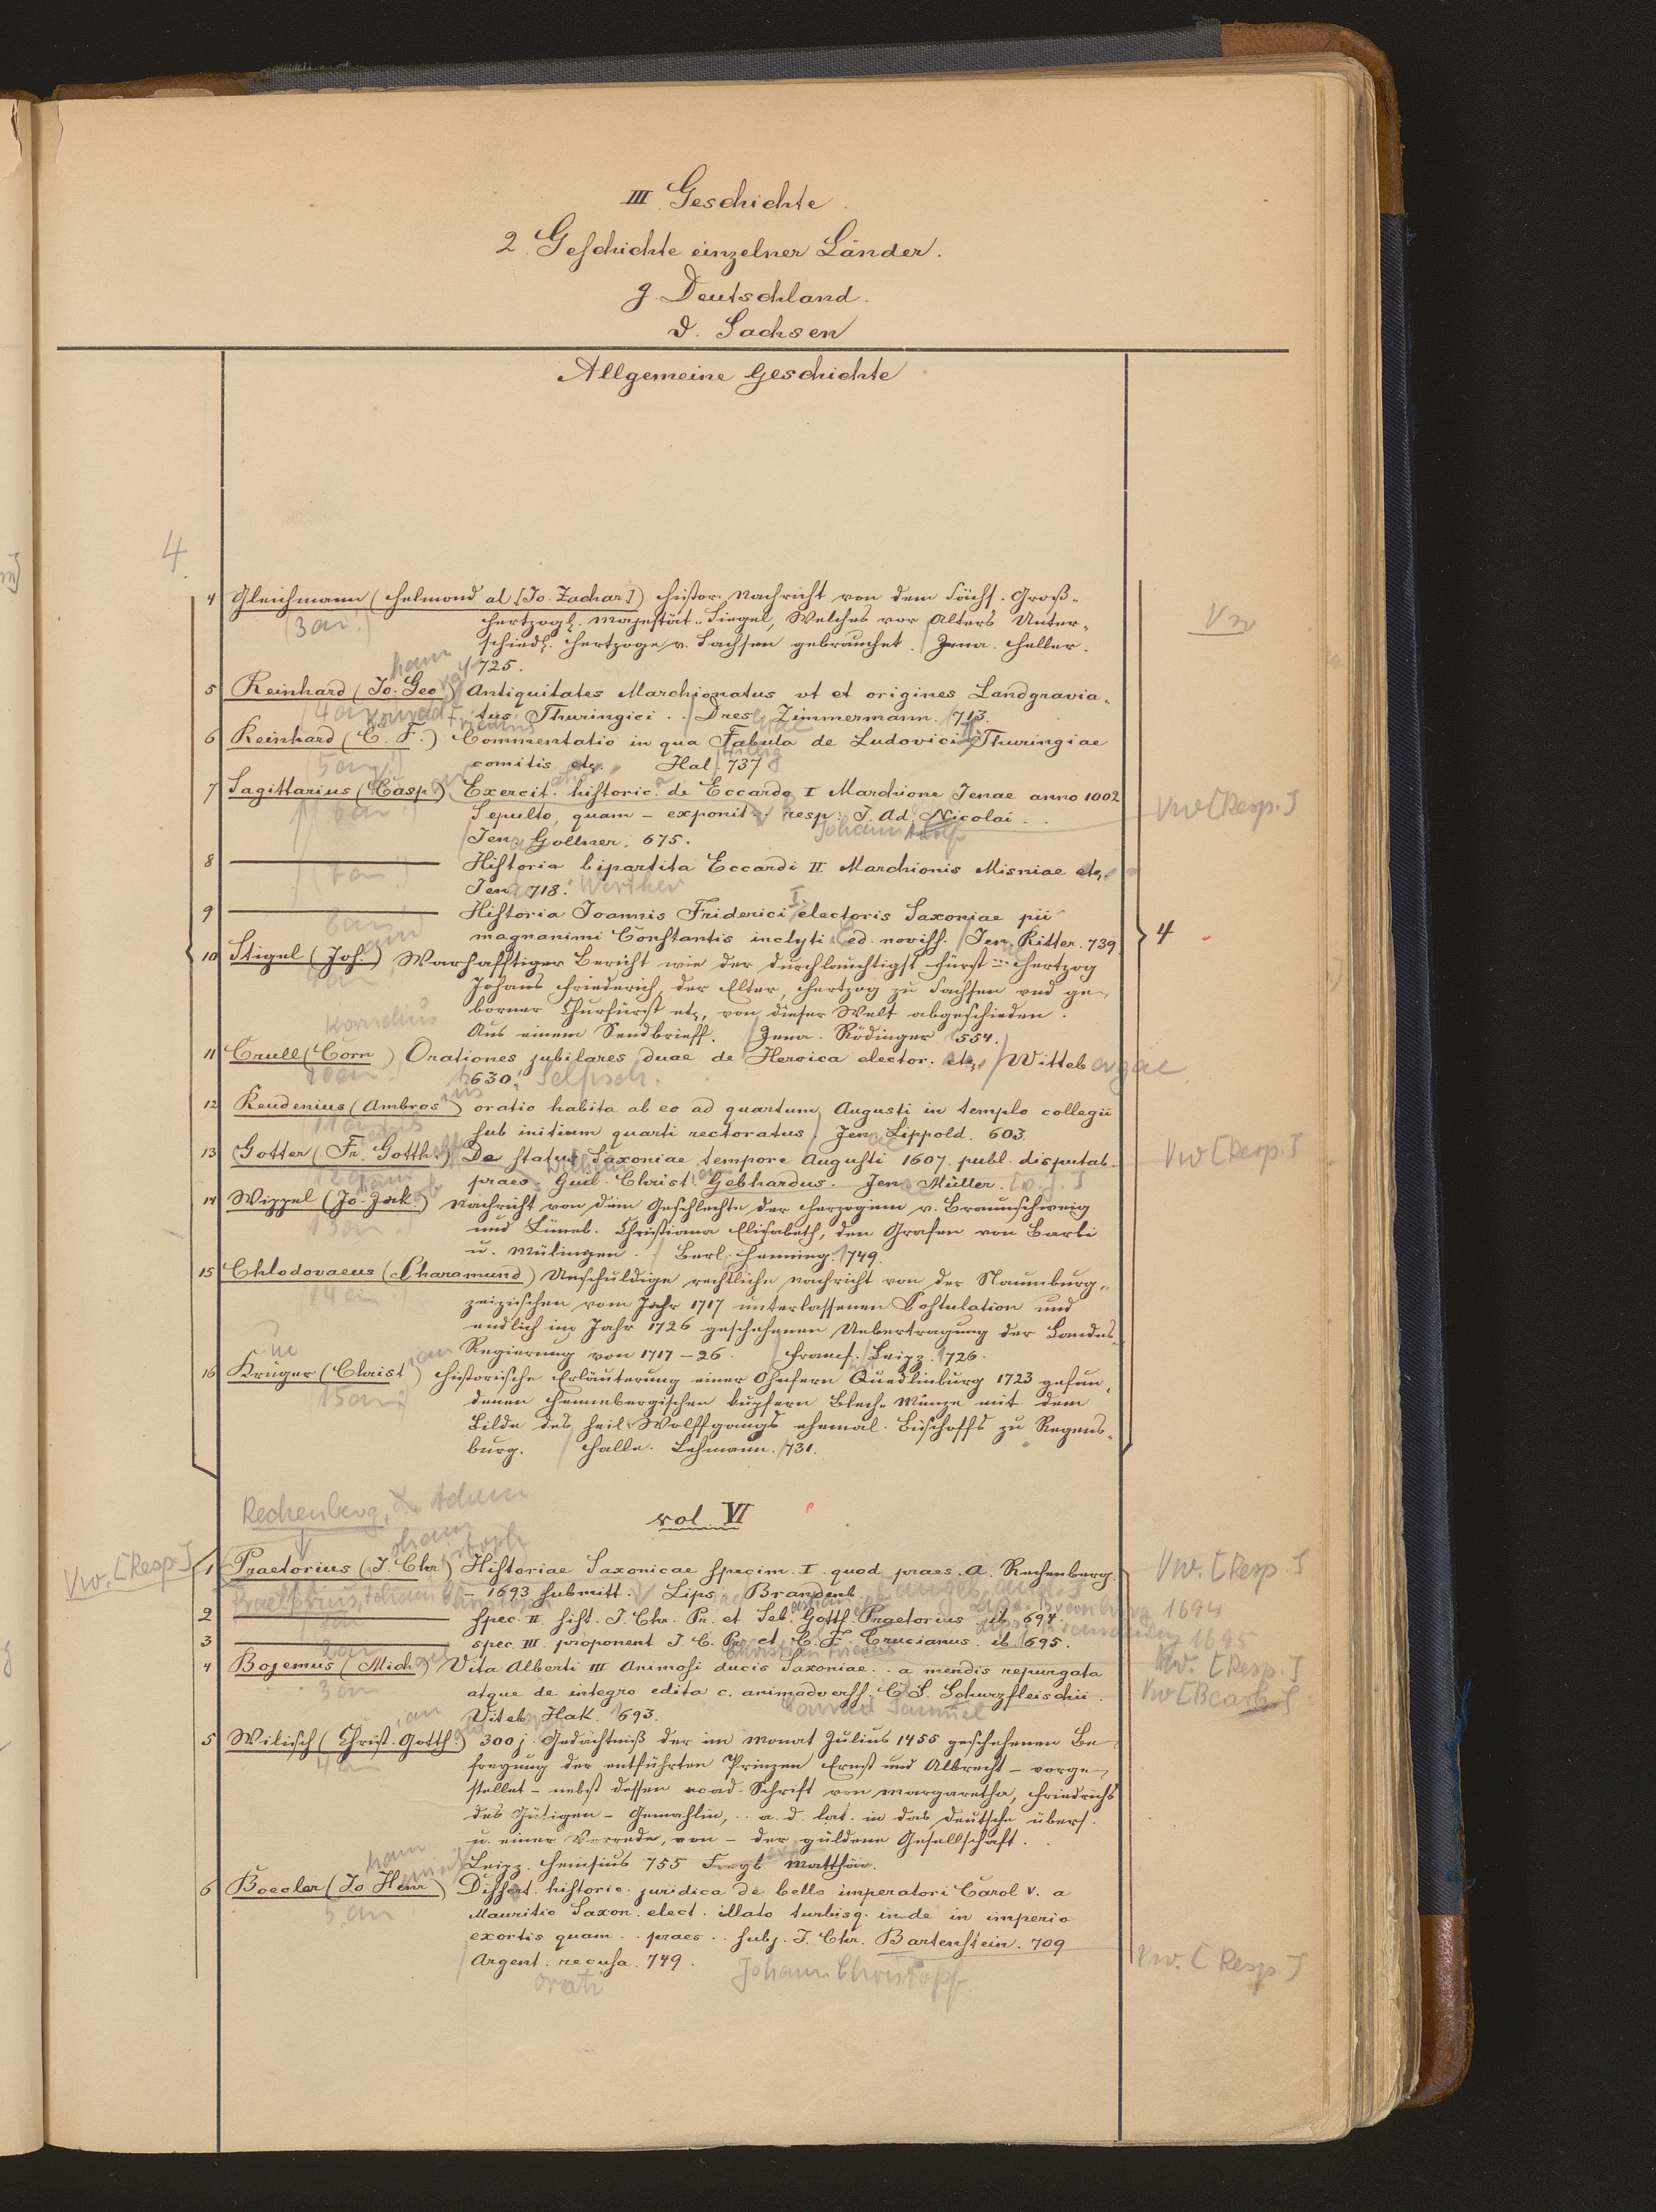 III Geschichte.
2. Geschichte einzelner Länder.
g. Deutschland.
d. Sachsen
Allgemeine Geschichte
4
4 Gleichmann (Helmond al [Jo. Zachar.]) Histor. Nachricht von dem Sächs. Groß-
(3an!) Hertzogl. Majestät-Siegel, Welches vor Alters Unter-
schiedl. Hertzoge v. Sachsen gebrauchet. / Jena. Heller.
1725.
Vw
5 Reinhard (Jo. Geo) Antiquitates Marchionatus ut et origines Landgravia-
(4an tus Thuringici . . / Dres Zimmermann. 1713.
6 Reinhard (C. F.) Commentatio in qua Fabula de Ludovici Thuringiae
(5an!) comitis etc. Hal. 737
7 Sagittarius (Casp.) Exercit. historic. de Eccardo I Marchione Jenae anno 1002
(6an!) Sepulto, quam – exponit . . resp. J. Ad. Nicolai . .
Johann Adolf
Vw [Resp.]
/ Jena Gollner. 675.
8 ——— Historia bipartita Eccardi II Marchionis Misniae etc.
(7an!) Jenae 718. Werther
9 ——— Historia Joannis Friderici I. electoris Saxoniae pii
8an! magnanimi Constantis inclyti Ed. noviss. / Jen. Ritter. 739
4
10 Stigel (Joh.) Warhafftiger Bericht wie der durchlauchtigst Fürst . . . Hertzog
Johans Friederich, der Elter, Hertzog zu Sachsen und ge-
borner Churfürst etc, von dieser Welt abgeschieden.
Aus einem Sendbrieff. / Jena. Rödinger 1554.
Kornelius
11 Crull (Corn) Orationes jubilares duae de Heroica elector. etc. / Witteb ergae
10an! 1630. Selfisch.
12 Reudenius (Ambros ius) oratio habita ab eo ad quartum Augusti in templo collegii
(11an sub initium quarti rectoratus / Jen ae Lippold. 603.
13 Gotter (Fr. Gotth.) De statu Saxoniae tempore Augusti 1607. publ. disputab.
Wilhelm
12an praes. Guil. Christ. Gebhardus. Jen ae Müller. [o. J.]
Vw [Resp.]
14 Wippel (Jo. Jak.) Nachricht von dem Geschlechte der Herzoginn v. Braunschweig
13an! und Lüneb. Christiana Elisabeth, den Grafen von Barbi
u. Mülingen. / Berl. Henning. 1749.
15 Chlodovaeus (Charamund) Unschuldige rechtliche Nachricht von der Naumburg-
(14an zeizischen vom Jahr 1717 unterlassenen Postulation und
endlich im Jahr 1726 geschehenen Uebertragung der Landes-
Regierung von 1717–26. / Francf. Leipz. 1726.
16 Krüger (Christ ian) Historische Erläuterung einer Ohnfern Quedlinburg 1723 gefun-
(15an!) denen Hennebergischen kupfern Blech-Münze mit dem
Bilde des heil. Wolffgangs ehemal. Bischoffs zu Regens-
burg. / Halle. Lehmann. 1731.
Rechenberg, Adam
vol VI
Vw. [Resp.]
1 Praetorius (J. Chr) Historiae Saxonicae specim. I. quod praes. A. Rechenberg.
Vw. [Resp.]
Praetorius, Johann Christoph – 1693 submitt. Lips. Brandenb.
2 ——— spec. II hist. J. Chr. Pr. et Seb. Gottf. Praetorius ib. 694.
Lips. Brandenburg 1694
3 ——— spec. III. proponent J. C. Pr. et C. F. Crucianus. ib. 1695.
Lips. Brandenburg 1695
4 Bojemus (Mich ael) Vita Alberti III Animosi ducis Saxoniae . . a mendis repurgata
Vw. [Resp.]
3an atque de integro edita c. animadverss. C. S. Schurzfleischii.
Vw [Bearb.]
Viteb. Hak. 1693. Conrad Samuel
5 Wilisch (Christ. Gotth.) 300j. Gedächtniß der im Monat Julius 1455 geschehenen Be-
4an freyung der entführten Prinzen Ernst und Albrecht – vorge-
stellet – nebst dessen acad. Schrift von Margaretha, Friedrichs
des Gütigen – Gemahlin, . . a. d. lat. in das Deutsche übers.
u. einer Vorrede, von – der güldene Gesellschaft . .
Leipz. Heinsius 755 Freyb. Matthäi.
6 Boecler (Jo Henr) Dissert. historic. juridica de bello imperatori Carol V. a
5.an Mauritio Saxon. elect. illato turbisq. inde in imperio
exortis quam . . praes . . subj. J. Chr. Bartenstein. 709
/ Argent. recusa. 749.
orati Johann Christoph
Vw. [Resp.]